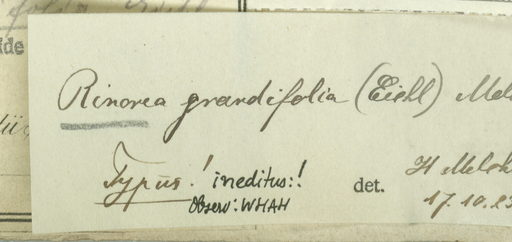 ide
Rinorea grandifolia (Eichl) Melc
Typus! ineditus:!
Observ: WHAH
det. H Melch
17.10.23